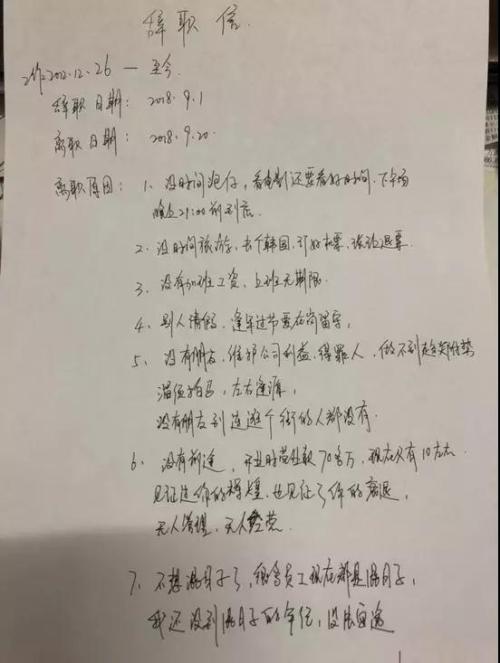 辞职信
工作2012.12.26 — 至今
辞职日期： 2018.9.1
离职日期： 2018.9.20
离职原因： 1、没时间泡仔，看电影还要看好时间，下午场
晚上21:00前到店
2、没时间旅游，去个韩国，订好机票，被迫退票
3、没有加班工资，上班无期限
4、别人请假，逢年过节要在岗留守，
5、没有朋友，维护公司利益，得罪人，做不到趋炎附势
溜须拍马，左右逢源，
没有朋友到连逛个街的人都没有
6、没有前途，开业时营业款70多万，现在只有10左右
见证过你的辉煌，也见证了你的衰退，
无人管理，无人经营
7、不想混日子了，很多员工现在都是混日子，
我还没到混日子的年纪，没